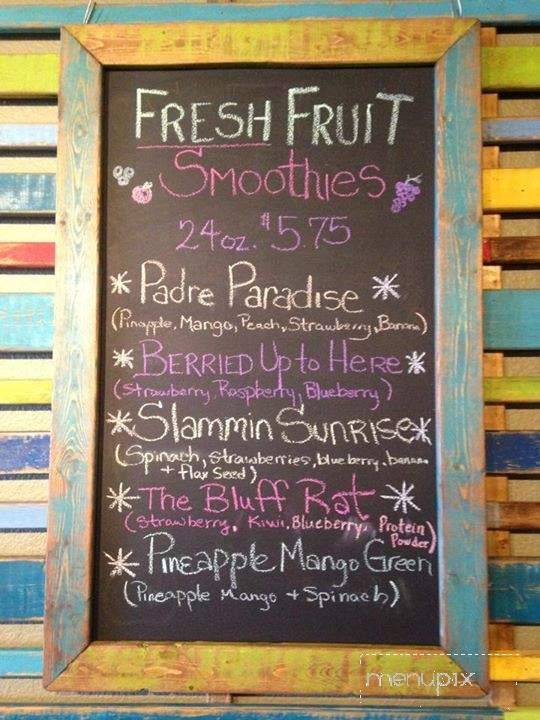 FRESH FRUIT
Smoothies
24oz. $5.75
* Padre Paradise *
(Pineapple, Mango, Peach, Strawberry, Banana)
* BERRIED Up to HERE *
(Strawberry, Raspberry, Blueberry)
* Slammin Sunrise *
(Spinach, strawberries, blueberry, banana
+ flax Seed)
* The Bluff Rat *
(Strawberry, Kiwi, Blueberry, Protein
Powder)
* Pineapple Mango Green
(Pineapple Mango + Spinach)
menupix